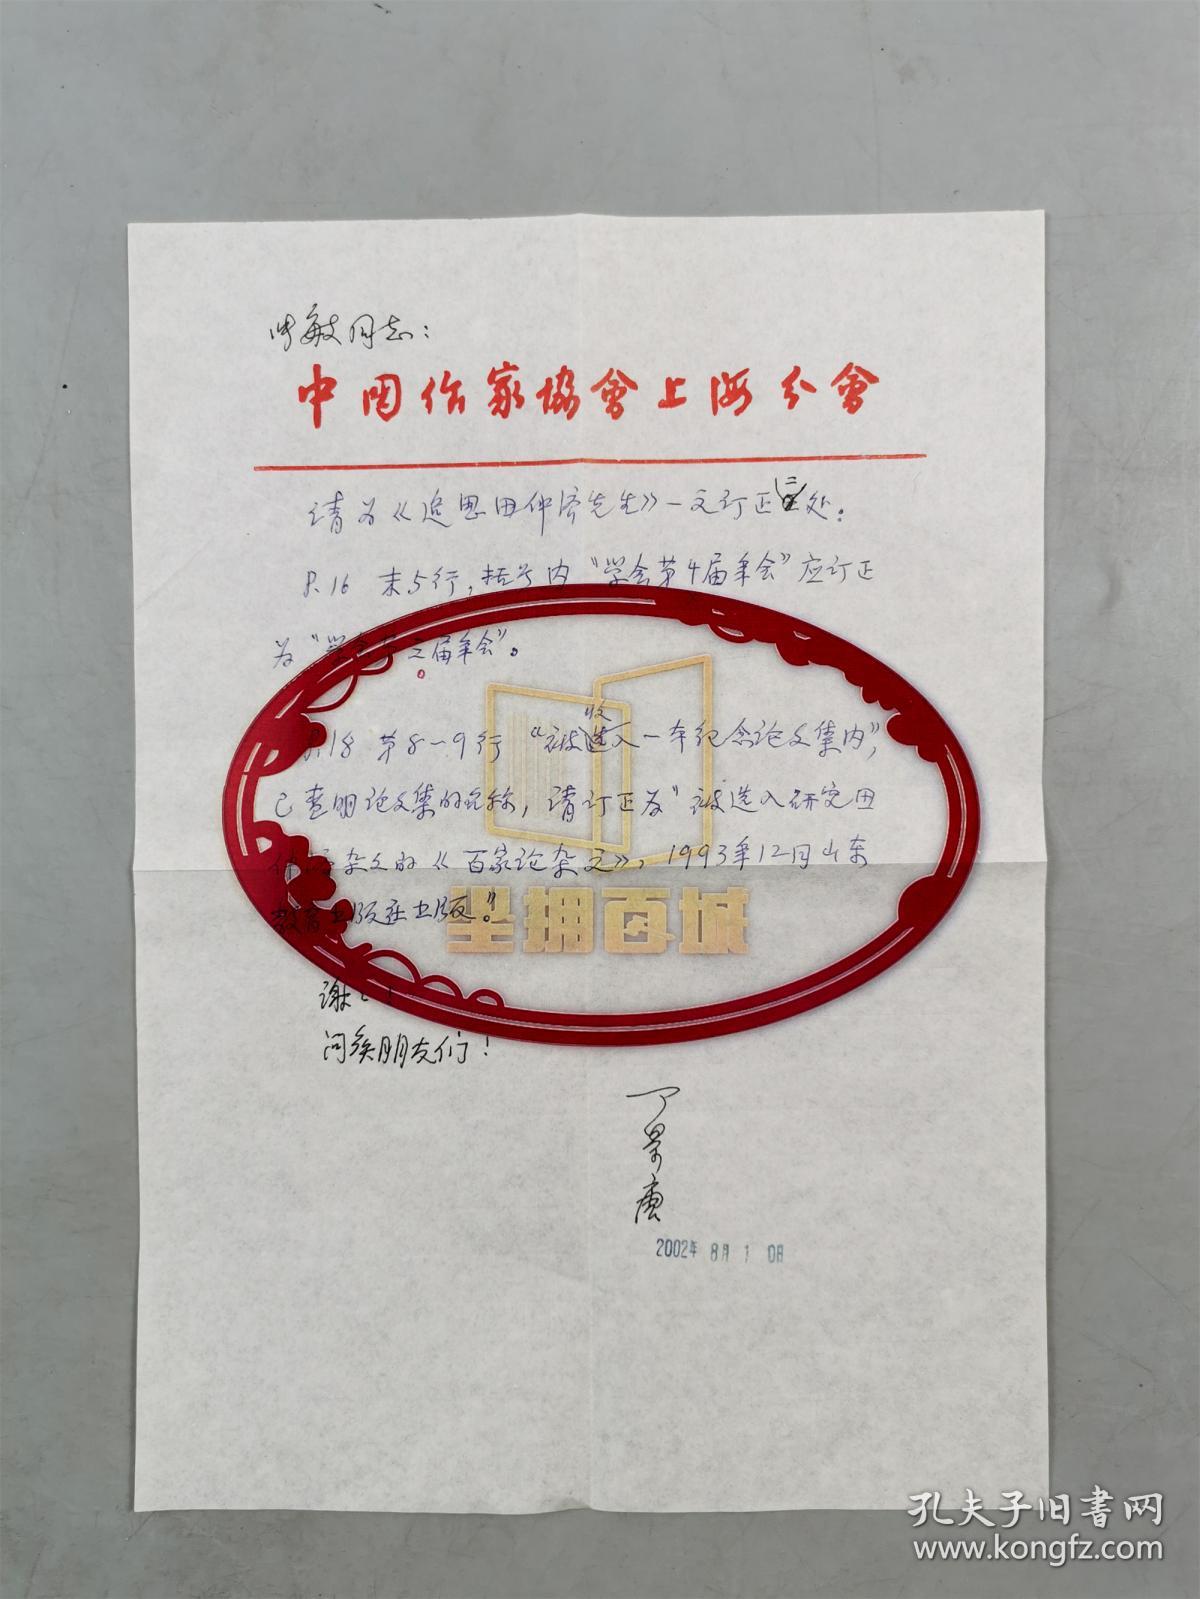 敏同志：
中国作家協會上海分會
请为《追思田仲济先生》一文订正二处：
P.16 末5行，括号内“学会第4届年会”应订正
为“学会第三届年会”。
P.18 第8—9行 “被收入一本纪念论文集内”，
已查明论文集的名称，请订正为“被选入研究田
仲济杂文的《百家论杂文》，1993年12月山东
教育出版社出版。”
谢谢！
问候朋友们！
丁景唐
2002年 8月 1 0日
坐拥百城
孔夫子旧书网
www.kongfz.com